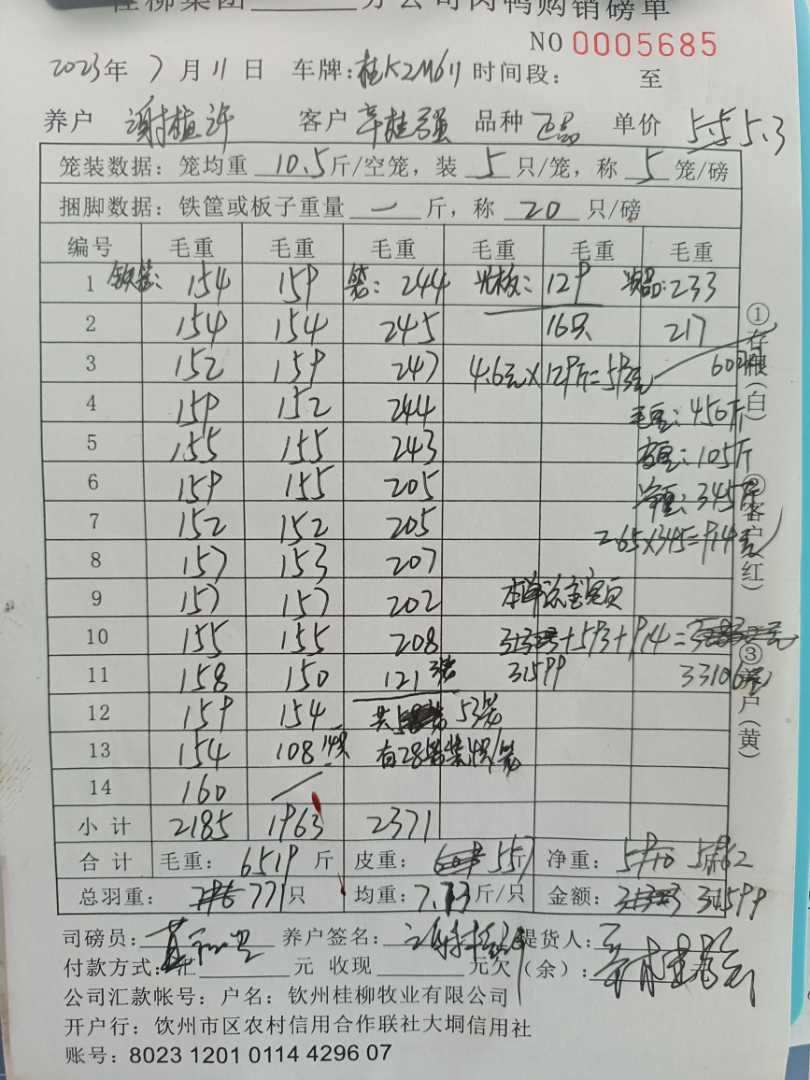 桂柳集团 分公司肉鸭购销磅单
NO 0005685
2023年 7月11日 车牌:桂K2M611 时间段: 至
养户 谢植许 客户 辛桂强 品种 正品 单价 5.3
笼装数据:笼均重 10.5 斤/空笼,装 5 只/笼,称 5 笼/磅
捆脚数据:铁筐或板子重量 一 斤,称 20 只/磅
编号 毛重 毛重 毛重 毛重 毛重 毛重
1 154 159 笼: 244 129 次品:233
2 154 154 245 16只 217
3 152 159 247 4.6元×129斤=593元
4 159 152 244 毛重:450斤
5 155 155 243 皮重:105斤
6 159 155 205 净重:345斤
7 152 152 205 2.65×345=914元
8 157 153 207
9 157 157 202
10 155 155 208 +593+914=
11 158 150 121 31599 33106元
12 159 154 共 53笼
13 154 108 14只 有28笼装4只/笼
14 160
小计 2185 1963 2371
合计 毛重: 6519 斤 皮重: 557 净重: 5962
总羽重: 771只 均重: 7.73斤/只 金额: 31599
司磅员: 养户签名: 提货人:
付款方式:汇 元 收现 元欠(余):
公司汇款帐号:户名:钦州桂柳牧业有限公司
开户行:钦州市区农村信用合作联社大垌信用社
账号:8023 1201 0114 4296 07
①存根(白)
②客户(红)
③养户(黄)